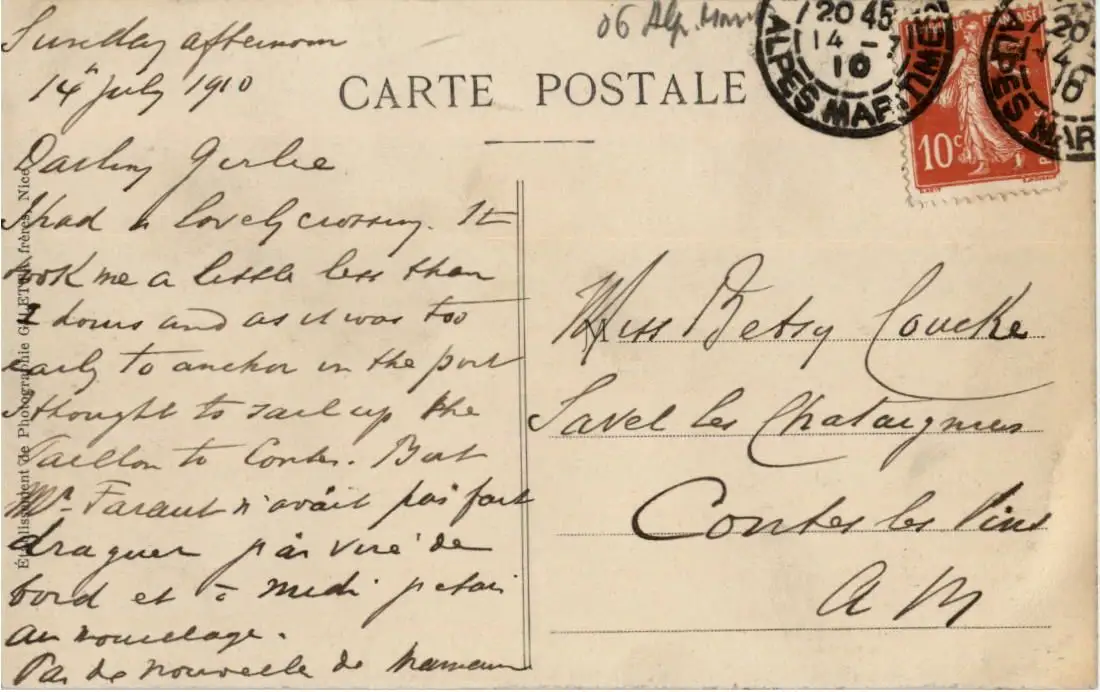 Sunday afternoon
14th July 1910
Darling Girlie
I had a lovely crossing. It
took me a little less than
hours and as it was too
early to anchor in the port
I thought to sail up the
Paillon to Contes. But
Mr. Faraut n'avait pas fait
draguer j'ai viré de
bord et à midi j'etais
au mouillage.
Pas de nouvelle de Maman
Établissement de Photographie GILETTA, frères, Nice
CARTE POSTALE
06 Alp. Mar
20 45
14 - 7
10
ALPES MAR
FRANÇAISE
10c
20
10
ALPES MAR
M
Miss Betsy Coucke
les Chataigniers
Contes les Pins
A M